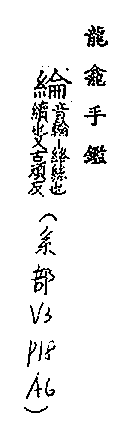 龍龕手鑑
綸音輪丨絲也
續也又古頑反
(系部 V3 P18 A6)